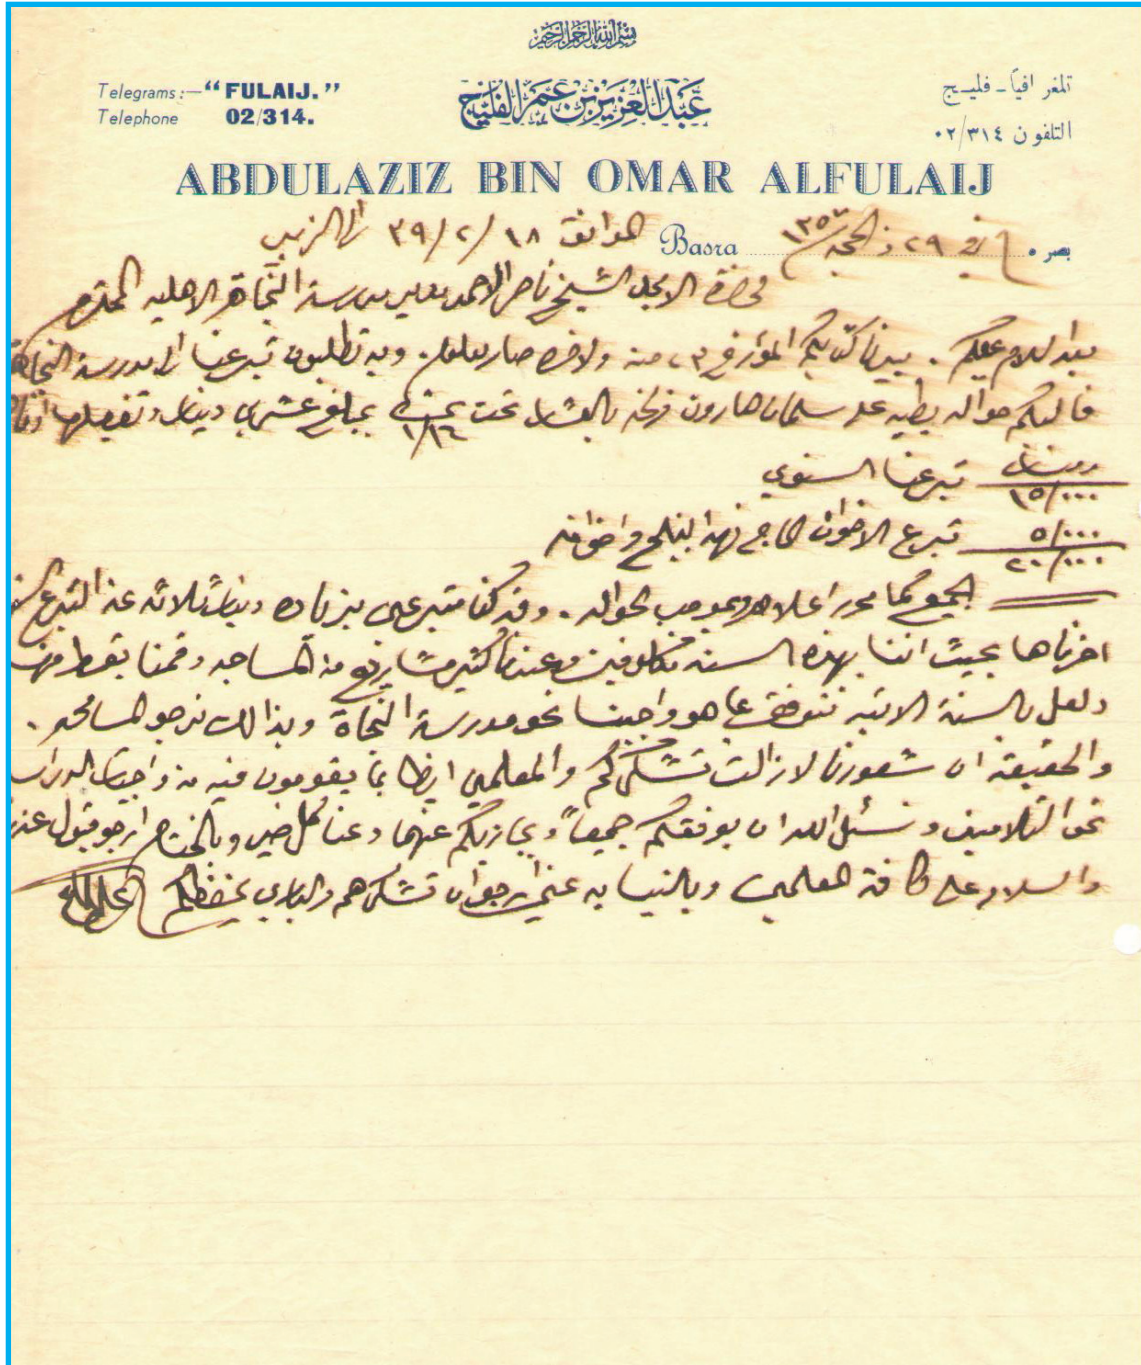 بسم الله الرحمن الرحيم
Telegrams:— “FULAIJ.”
Telephone 02/314.
عبد العزيز بن عمر الفليج
تلغرافياً - فليج
التلفون ٠٢/٣١٤
ABDULAZIZ BIN OMAR ALFULAIJ
بصره في ٢٩ ذ الحجه ١٣٥٧ Basra الموافق ١٨/٢/٣٩ الى الزبير
حضرة الاجل الشيخ ناصر الاحمد مدير مدرسة النجاة الاهليه المحترم
بعد السلام عليكم . بيدنا كتابكم المؤرخ في منه ولاخره صار معلوم . وبه تطلبون تبرعنا الى مدرسة النجاة
فاليكم حواله بطيه على سلمان هارون بالعشار تحت بمبلغ عشرين دينار وتفصيلها
دينار
١٥/٠٠٠ تبرعنا السنوي
٥/٠٠٠ تبرع الاخوان الحاج فهد الفليج واخوانه
٢٠/٠٠٠
الجميع كما محرر اعلاه وبموجب الحواله . وقد كنا متبرعين بزياده دينار ثلاثه عن التبرع
اخرناها بحيث اننا بهذه السنه متكلفين وعندنا كثير مشاريع من المساجد وقمنا بقسط منها
ولعل بالسنة الاتيه نتوفق بما هو واجبنا نحو مدرسة النجاة وبذالك نرجو المسامحه .
والحقيقه ان شعورنا لازالت تشكركم والمعلمين ايظا بما يقومون فيه من واجبات
نحو التلاميذ ونسئل الله ان يوفقكم جميعاً ويجازيكم عنهما وعنا كل خير وبالختام ارجو قبول
والسلام على كافة المعلمين وبالنيابه عني ارجو ان تشكرهم والباري يحفظكم